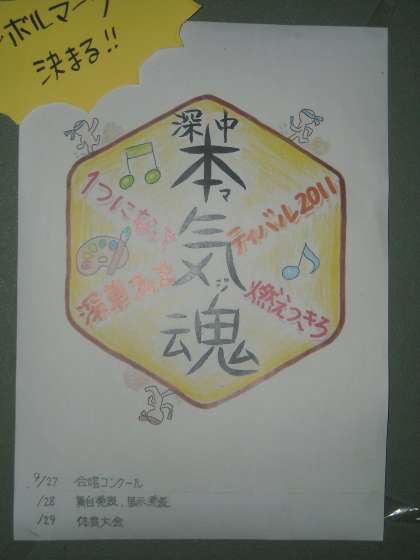 ボルマーク
決まる!!
深中
本気魂
マジ
1つになって
ティバル2011
燃えつきろ
9/27 合唱コンクール
/28 舞台発表、展示発表
/29 体育大会